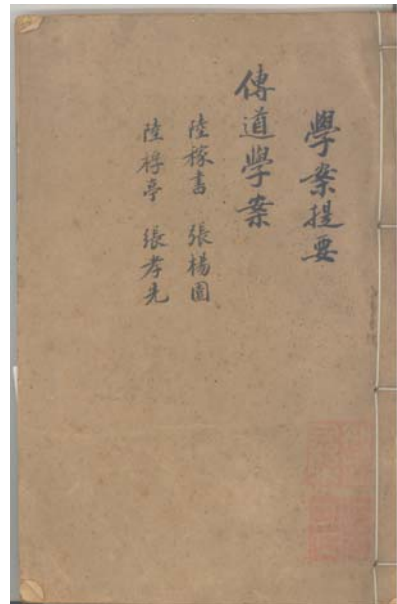 學案提要
傳道學案
陸稼書 張楊園
陸桴亭 張孝先